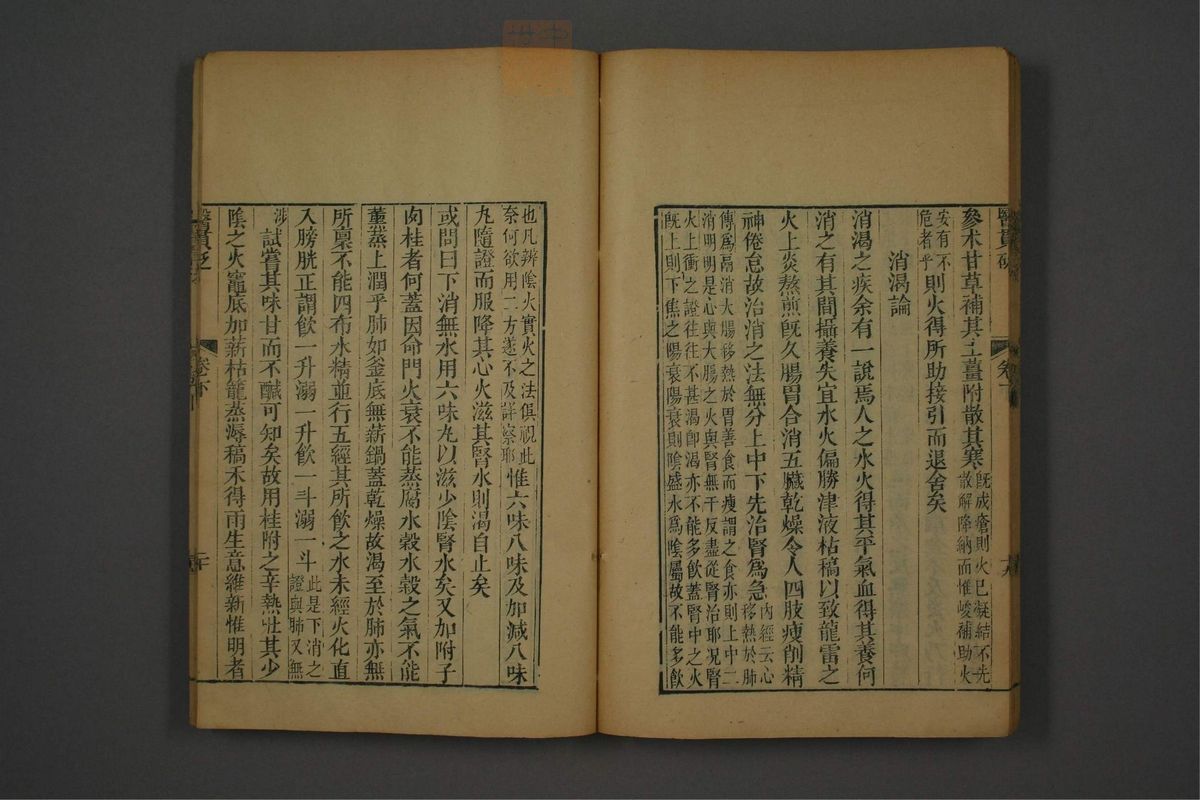 醫貫砭
卷下
十九
參朮甘草補其土薑附散其寒旣成瘡則火已凝結不先
散解降納而惟峻補助火
安有不
危者乎則火得所助接引而退舍矣
消渴論
消渴之疾余有一說焉人之水火得其平氣血得其養何
消之有其間攝養失宜水火偏勝津液枯稿以致龍雷之
火上炎熬煎旣久腸胃合消五臟乾燥令人四肢瘦削精
神倦怠故治消之法無分上中下先治腎爲急內經云心
移熱於肺
傳爲鬲消大腸移熱於胃善食而瘦謂之食亦則上中二
消明明是心與大腸之火與腎無干反盡從腎治耶况腎
火上衝之證往往不甚渴卽渴亦不能多飲蓋腎中之火
旣上則下焦之陽衰陽衰則陰盛水爲陰屬故不能多飲
也凡辨陰火實火之法俱視此
奈何欲用二方遂不及詳察耶惟六味八味及加減八味
丸隨證而服降其心火滋其腎水則渴自止矣
或問曰下消無水用六味丸以滋少陰腎水矣又加附子
肉桂者何蓋因命門火衰不能蒸腐水穀水穀之氣不能
薰蒸上潤乎肺如釜底無薪鍋蓋乾燥故渴至於肺亦無
所稟不能四布水精並行五經其所飲之水未經火化直
入膀胱正謂飲一升溺一升飲一斗溺一斗此是下消之
證與肺又無
涉試嘗其味甘而不鹹可知矣故用桂附之辛熱壯其少
陰之火竈底加薪枯籠蒸溽稿禾得雨生意維新惟明者
醫貫砭
卷下
二十